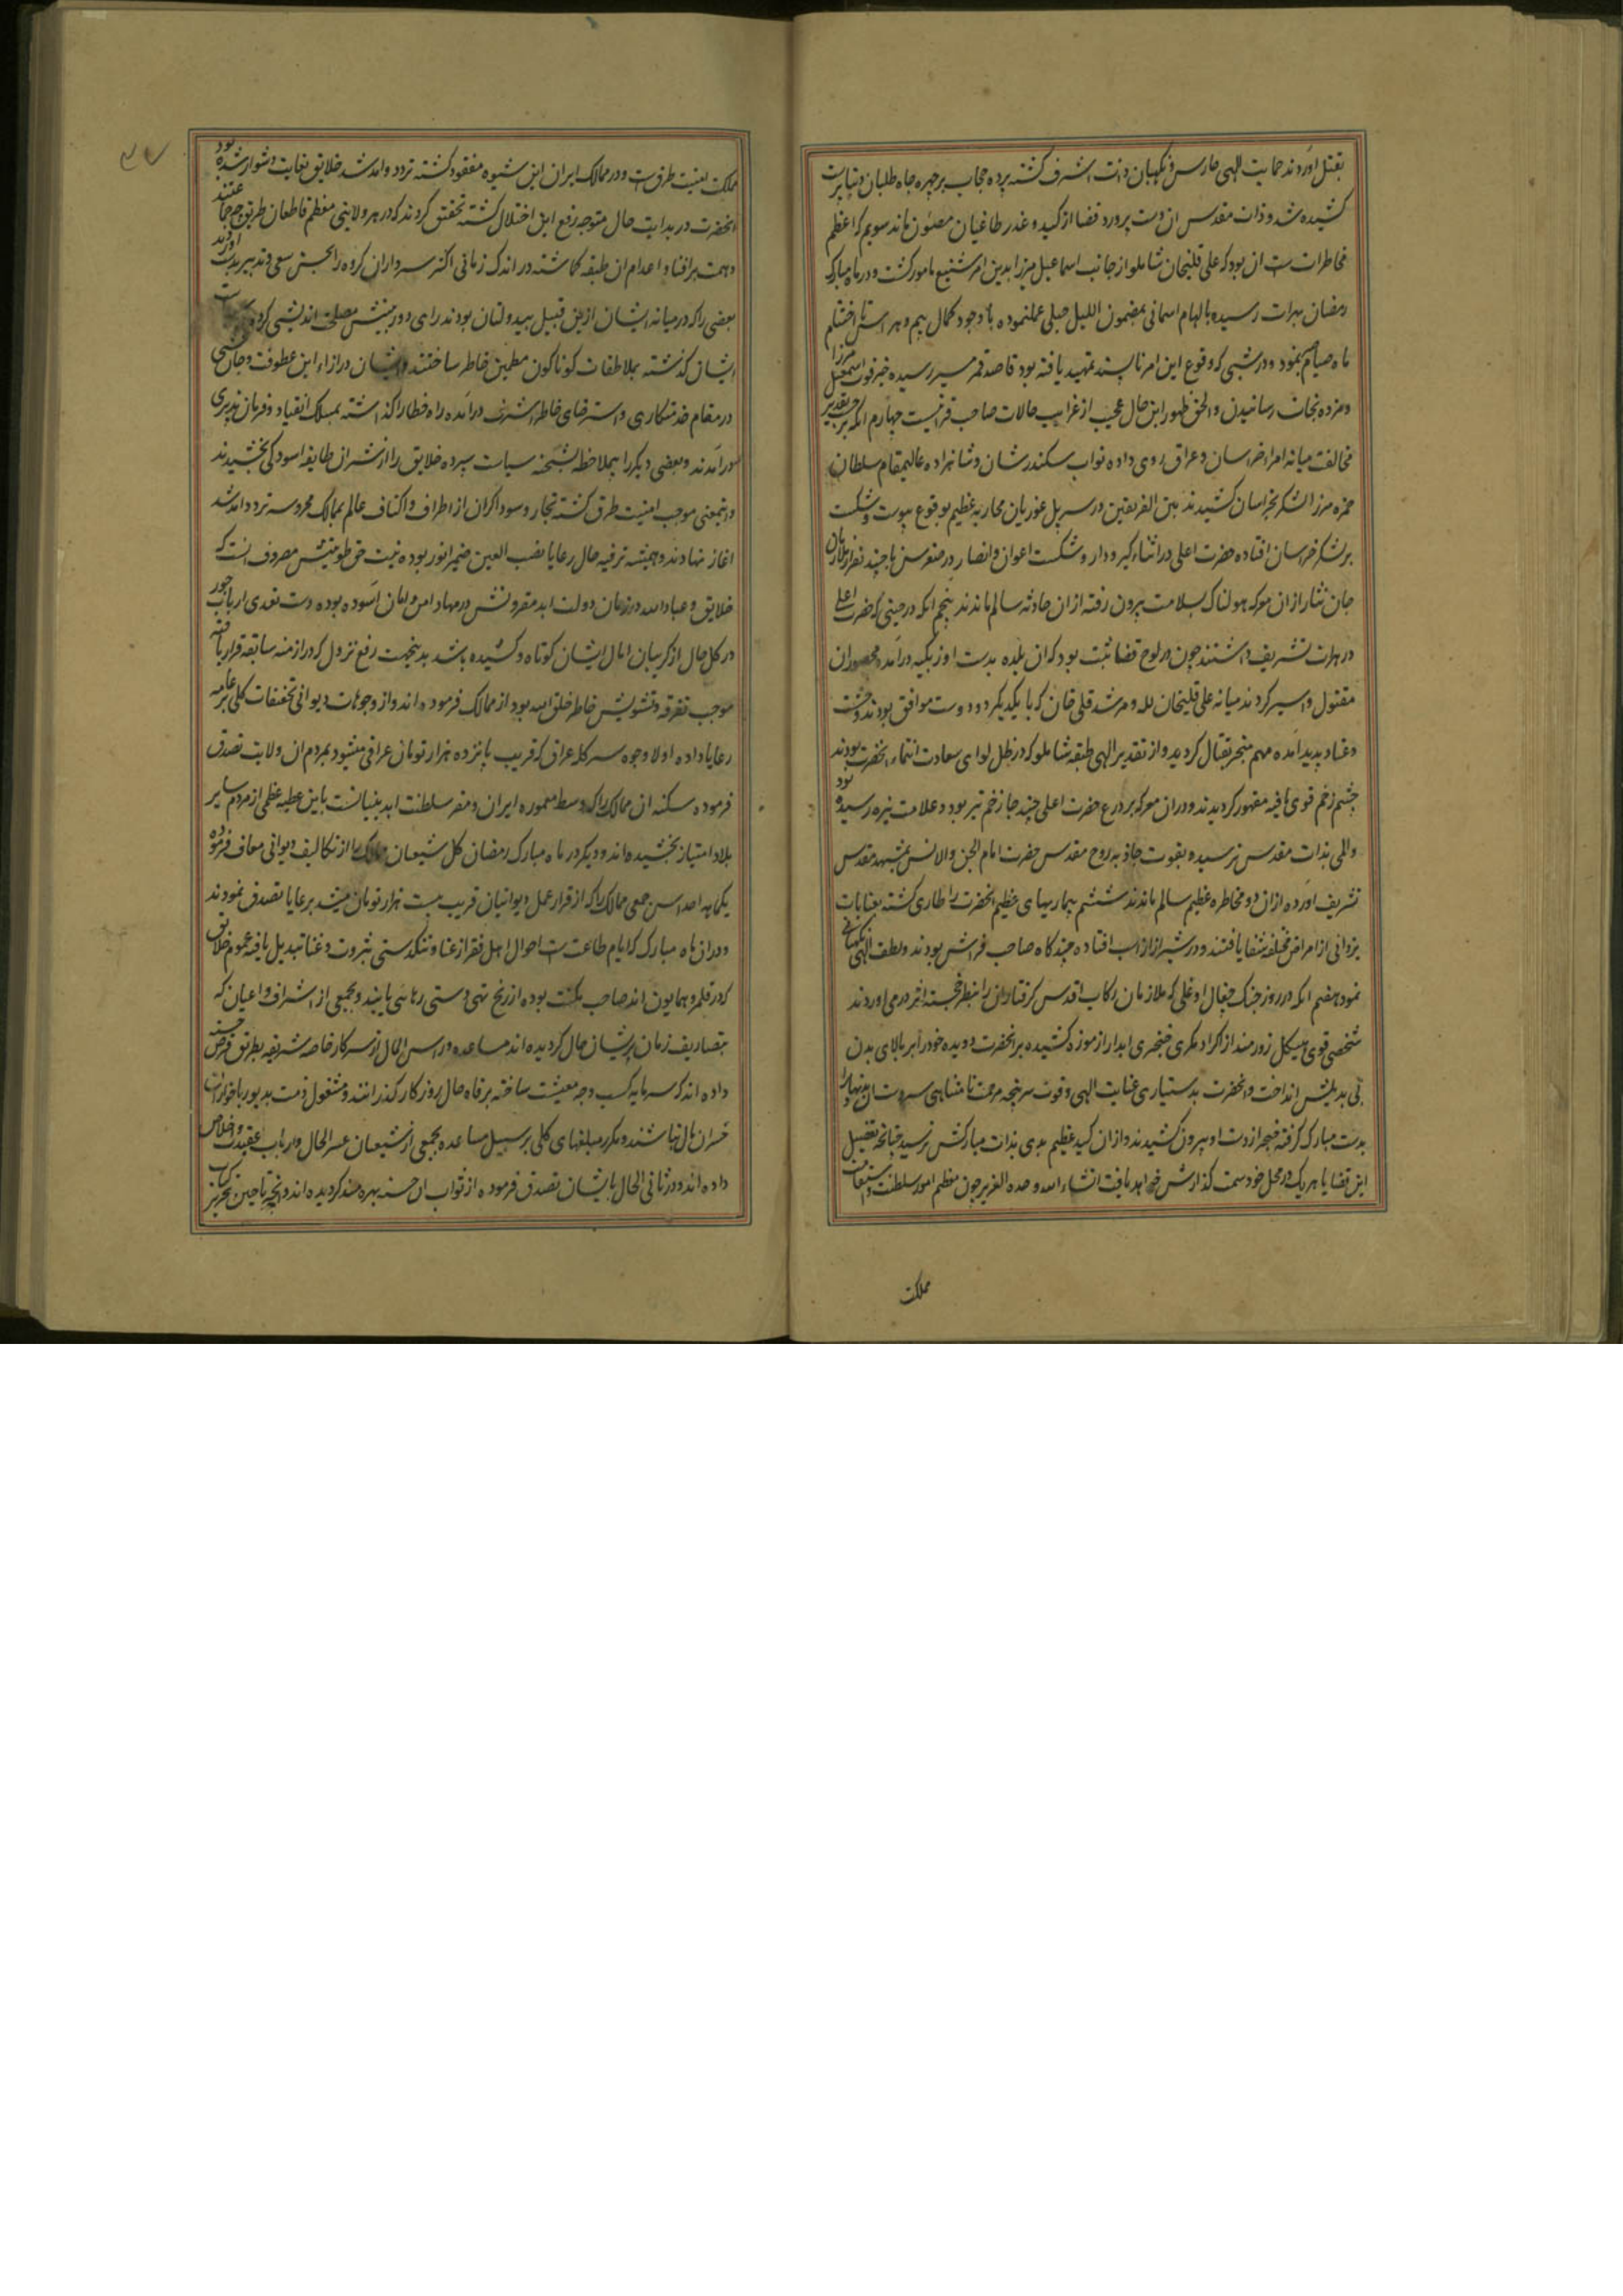 بقتل آوردند حمایت الهی حارس و نگهبان ذات اشرف گشته پرده حجاب بر چهره جاه طلبان دنیاپرست
کشیده شد و ذات مقدس ان دست پرورد قضا از کید و غدر طاغیان مصئون ماند سویم که اعظم
مخاطرات است ان بود که علی قلیخان شاملو از جانب اسماعیل میرزا بدین امر شنیع مامور گشت و در ماه مبارک
رمضان بهرات رسیده بالهام اسمانی بمضمون اللیل حبلی عملنموده با وجود کمال بیم و هراس تا اختتام
ماه صیام بنمود و در شبی که وقوع این امر ناپسند تمهید یافته بود قاصد قمر مسیر رسیده خبر فوت اسمعیل میرزا
و مژده نجات رسانیدن والحق ظهور این حال عجیب از غرایب حالات صاحب قرانیست چهارم انکه بر حسب تقدیر
مخالفت میانه امراء خراسان و عراق روی داده نواب سکندر شان و شاهزاده عالیمقام سلطان
حمزه میرزا لشکر بخراسان کشیدند بین الفریقین در سر پل غوریان محاربه عظیم بوقوع پیوست و شکست
بر لشکر خراسان افتاده حضرت اعلی در اثناء گیر و دار و شکست اعوان و انصار در صغر سن با چند نفر از ملازمان
جان نثار از ان معرکه هولناک بسلامت بیرون رفته از ان حادثه سالم ماندند پنجم انکه در حینی که حضرت اعلی
در هرات تشریف داشتند چون در لوح قضا ثبت بود که ان بلده بدست اوزبکیه درآمده محصوران
مقتول و اسیر گردند میانه علی قلیخان لله و مرشد قلی خان که با یکدیگر دو دوست موافق بودند وحشت
و عناد پدید آمده مهم منجر بقتال گردید و از تقدیر الهی طبقه شاملو که در ظل لوای سعادت انتماء انحضرت بودند
چشم زخم قوی یافته مقهور گردیدند و در ان معرکه بر درع حضرت اعلی چند جا زخم تیر بود و علامت نیزه رسیده بود
و المی بذات مقدس نرسیده بقوت جاذبه روح مقدس حضرت امام الجن والانس بمشهد مقدس
تشریف آورده از ان دو مخاطره عظیم سالم ماندند ششم بیماریهای عظیم انحضرت را طاری گشته بعنایات
یزدانی از امراض مختلفه شفا یافتند و در شیراز از اسب افتاده چندگاه صاحب فراش بودند و لطف الهی نگهبانی
نمود هفتم انکه در روز جنک چغال اوغلی که ملازمان رکاب اقدس گرفتاران را بنظر خجسته اثر در می آوردند
شخصی قوی هیکل زورمند از اکراد مکری خنجری ابدار از موزه کشیده بر انحضرت دویده خود را بر بالای بدن
بی بدیلش انداخت و انحضرت بدستیاری عنایت الهی و قوت سرپنجه مرحمت نامتناهی سر دست ان بد نهاد را
بدست مبارک گرفته خنجر از دست او بیرون کشیدند و از ان کید عظیم بدی بذات مبارکش نرسید چنانچه تفصیل
این قضایا هر یک در محل خود سمت گذارش خواهد یافت انشاء الله وحده العزیز چون معظم امور سلطنت و استقامت
مملکت
مملکت امنیت طرق است و در ممالک ایران این شیوه مفقود گشته تردد و امد شد خلایق بغایت دشوار شده بود
انحضرت در بدایت حال متوجه رفع این اختلال گشته تحقیق کردند که در هر ولایتی معظم قاطعان طریق چه جماعتند
و همت بر افناء و اعدام ان طبقه گماشته در اندک زمانی اکثر سرداران گروه را بحسن سعی و تدبیر بدست آوردند
بعضی را که در میانه ایشان از این قبیل بیدولتان بودند رای دوربینش مصلحت اندیشی کرده
ایشان گذشته بملاطفات گوناگون مطمئن خاطر ساختند و ایشان در ازاء این عطوفت و جان بخشی
در مقام خدمتکاری و استرضای خاطر اشرف درآمده راه خطا را گذاشته بمسلک انقیاد و فرمان پذیری
درآمدند و بعضی دیگر را بیملاحظه بشحنه سیاست سپرده خلایق را از شر ان طایفه اسودگی بخشیدند
و اینمعنی موجب امنیت طرق گشته تجار و سوداگران از اطراف و اکناف عالم بممالک محروسه تردد و امد شد
اغاز نهادند و همیشه ترفیه حال رعایا نصب العین ضمیر انور بوده نیت حق طویتش مصروف انست که
خلایق و عباد الله در زمان دولت ابد مقرونش در مهاد امن و امان آسوده بوده دست تعدی ارباب جور
در کل حال از گریبان امال ایشان کوتاه و کشیده باشد بدینجهت رفع نزول که در ازمنه سابقه قرار یافته
موجب تفرقه و تشویش خاطر خلق الله بود از ممالک فرموده اند و از وجوهات دیوانی تخفیفات کلی بر عامه
رعایا داده اولا وجوه سرگله عراق که قریب پانزده هزار تومان عراقی میشود بمردم ان ولایت تصدق
فرموده سکنه ان ممالک را که وسط معموره ایران و مقر سلطنت ابد بنیانست باین عطیه عظمی از مردم سایر
بلاد امتیاز بخشیده اند و دیگر در ماه مبارک رمضان کل شیعیان ممالک را از تکالیف دیوانی معاف فرموده
یکماهه جمعی ممالک را که از قرار عمل دیوانیان قریب بیست هزار تومان میشد برعایا تصدق نمودند
و در ان ماه مبارک که ایام طاعت است احوال اهل فقر از عنا و تنگدستی بثروت و غنا تبدیل یافته عموم خلایق
که در قلمرو همایون اند صاحب مکنت بوده از رنج تهی دستی رهایی یابند و بجمعی از اشراف و اعیان که
بتصاریف زمان پریشان حال گردیده اند مساعده و راس المال از سرکار خاصه شریفه بطریق قرض حسنه
داده اند که سرمایه کسب وجه معیشت ساخته برفاه حال روزگار گذرانند و مشغول ذمت بدیون
خسران مال نباشند و مکرر مبلغهای کلی بر سبیل مساعده بجمعی از شیعیان عسر الحال و ارباب عقیدت و اخلاص
داده اند و در ثانی الحال بایشان تصدق فرموده از ثواب ان حسنه بهره مند گردیده اند و انچه تا حین تحریر